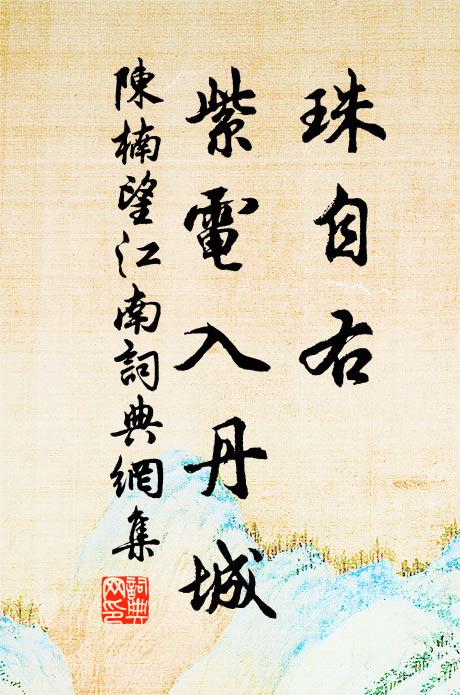 珠自右
紫電入丹城
陳楠望江南詞典網集
詞典
网印